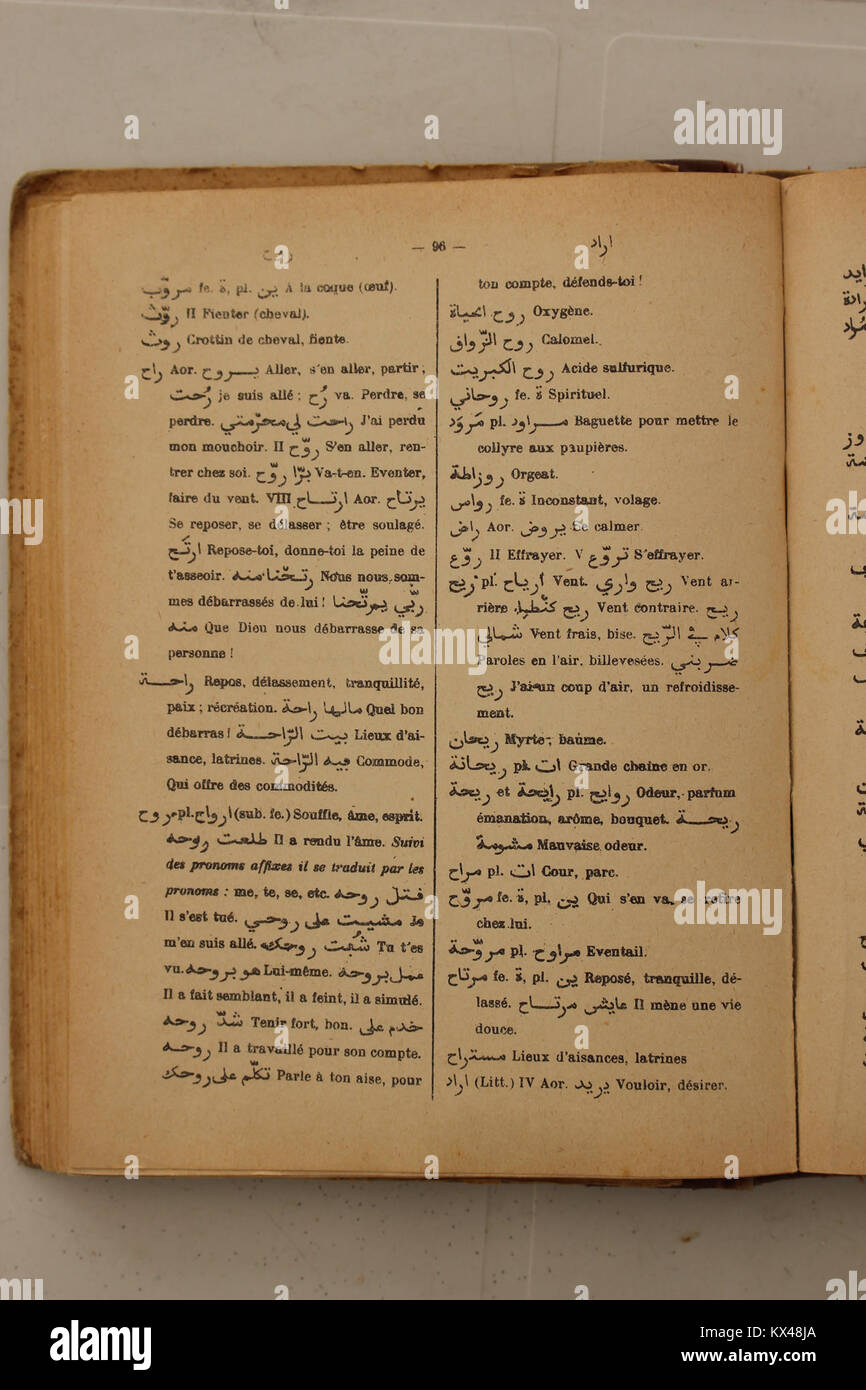 — 96 —
اراد
مروّب fe. ة, pl. ين A la coque (œuf).
روّث II Fienter (cheval).
روث Crottin de cheval, fiente.
راح Aor. يروح Aller, s'en aller, partir;
رُحت je suis allé; رُح va. Perdre, se
perdre. راحت لي محرّمتي J'ai perdu
mon mouchoir. II روّح S'en aller, ren-
trer chez soi. روّح برّا Va-t-en. Eventer,
faire du vent. VIII ارتاح Aor. يرتاح
Se reposer, se délasser; être soulagé.
ارتَح Repose-toi, donne-toi la peine de
t'asseoir. رتحنا منه Nous nous som-
mes débarrassés de lui! ربّي يرتّحنا
منه Que Dieu nous débarrasse de sa
personne!
راحة Repos, délassement, tranquillité,
paix; récréation. مالها راحة Quel bon
débarras! بيت الرّاحة Lieux d'ai-
sance, latrines. فيه الرّاحة Commode,
Qui offre des commodités.
روح pl. ارواح (sub. fe.) Souffle, âme, esprit.
طلعت روحه Il a rendu l'âme. Suivi
des pronoms affixes il se traduit par les
pronoms: me, te, se, etc. قتل روحه
Il s'est tué. مشيت على روحي Je
m'en suis allé. شُفت روحك Tu t'es
vu. هو بروحه Lui-même. عمل بروحه
Il a fait semblant, il a feint, il a simulé.
شدّ روحه Tenir fort, bon. خدم على
روحه Il a travaillé pour son compte.
تكلّم على روحك Parle à ton aise, pour
ton compte, défends-toi!
روح الحياة Oxygène.
روح الزّواق Calomel.
روح الكبريت Acide sulfurique.
روحاني fe. ة Spirituel.
مَروَد pl. مراود Baguette pour mettre le
collyre aux paupières.
روزاطة Orgeat.
رواس fe. ة Inconstant, volage.
راض Aor. يروض Se calmer.
روّع II Effrayer. V تروّع S'effrayer.
ريح pl. ارياح Vent. ريح واري Vent ar-
rière. ريح Vent contraire. ريح
شمالي Vent frais, bise. كلام في الرّيح
Paroles en l'air, billevesées. ضربني
ريح J'ai un coup d'air, un refroidisse-
ment.
ريحان Myrte; baume.
ريحانة pl. ات Grande chaine en or.
ريحة et رايحة pl. روايح Odeur, parfum
émanation, arôme, bouquet. ريحة
مشومة Mauvaise odeur.
مراح pl. ات Cour, parc.
مروّح fe. ة, pl. ين Qui s'en va, se retire
chez lui.
مروّحة pl. مراوح Eventail.
مرتاح fe. ة, pl. ين Reposé, tranquille, dé-
lassé. عايش مرتاح Il mène une vie
douce.
مستراح Lieux d'aisances, latrines
اراد (Litt.) IV Aor. يريد Vouloir, désirer.
alamy
Image ID: KX48JA
www.alamy.com